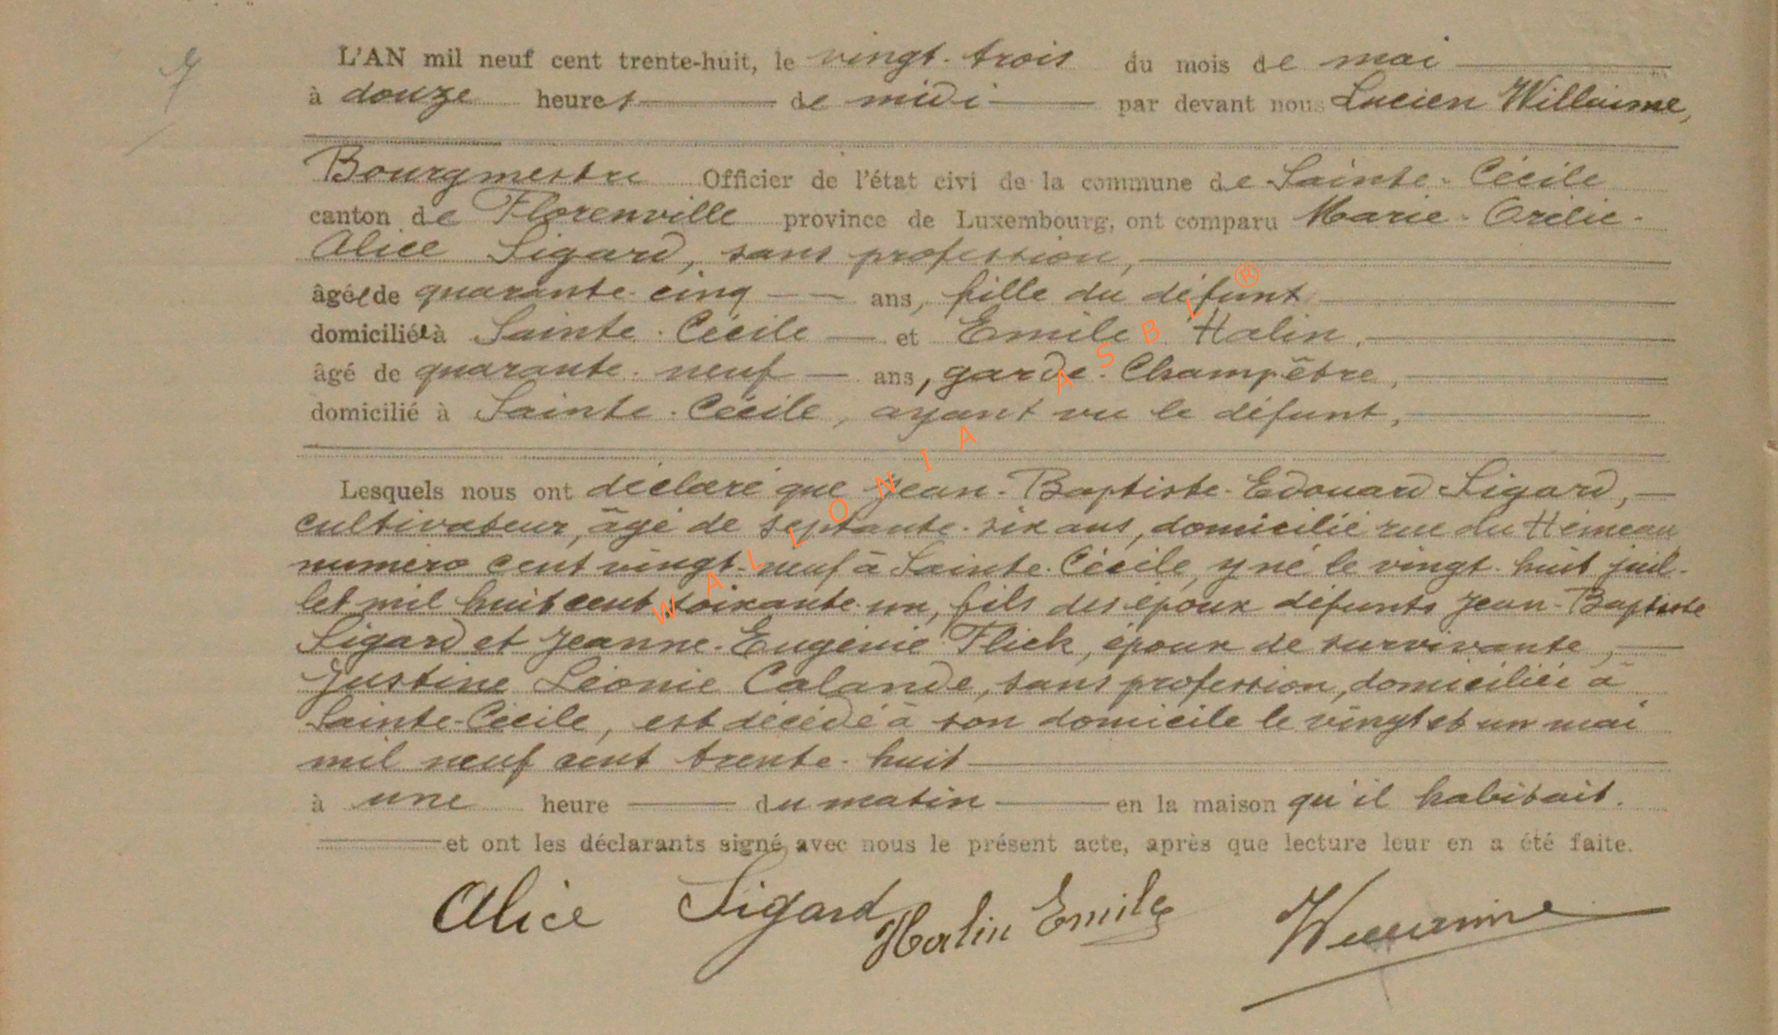 7
L'AN mil neuf cent trente-huit, le vingt-trois du mois de mai
à douze heures de midi par devant nous Lucien Willaime,
Bourgmestre Officier de l'état civi de la commune de Sainte-Cécile
canton de Florenville province de Luxembourg, ont comparu Marie-Orélie-
Alice Sigard, sans profession,
âgée de quarante-cinq ans, fille du défunt
domiciliée à Sainte-Cécile et Emile Halin,
âgé de quarante-neuf ans, garde-Champêtre,
domicilié à Sainte-Cécile, ayant vu le défunt,
Lesquels nous ont déclaré que Jean-Baptiste-Edouard Sigard,
cultivateur, âgé de septante-six ans, domicilié rue du Hémeau
numéro cent vingt-neuf à Sainte-Cécile, y né le vingt-huit juil-
let mil huit cent soixante-un, fils des époux défunts Jean-Baptiste
Sigard et Jeanne-Eugénie Flick, époux de survivante,
Justine Léonie Calande, sans profession, domiciliée à
Sainte-Cécile, est décédé à son domicile le vingt et un mai
mil neuf cent trente-huit
à une heure du matin en la maison qu'il habitait.
et ont les déclarants signé avec nous le présent acte, après que lecture leur en a été faite.
Alice Sigard Halin Emile Willaime
WALLONIA ASBL ®